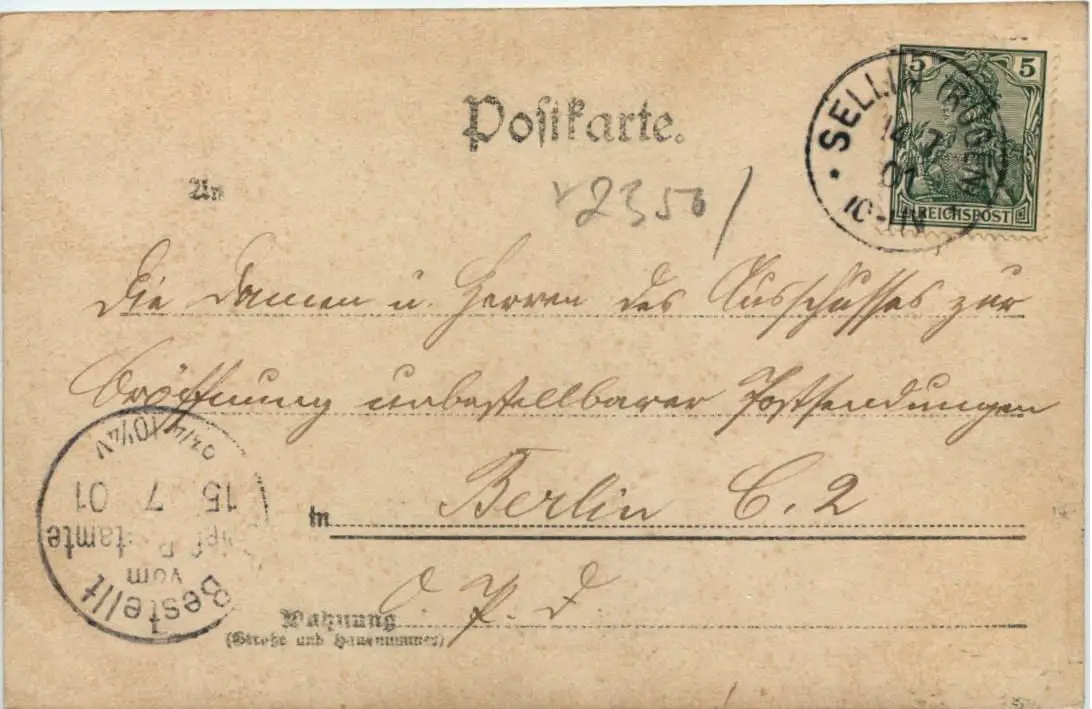 Postkarte.
5 5
SELLIN (RÜGEN)
14 7
01
10-11N
REICHSPOST
An
2350/
Die Damen u. Herren des Ausschusses zur
Eröffnung unbestellbarer Postsendungen
in Berlin C. 2
O. P. D.
Wohnung
(Straße und Hausnummer)
Bestellt
vom
Postamte
15 7 01
10¼V